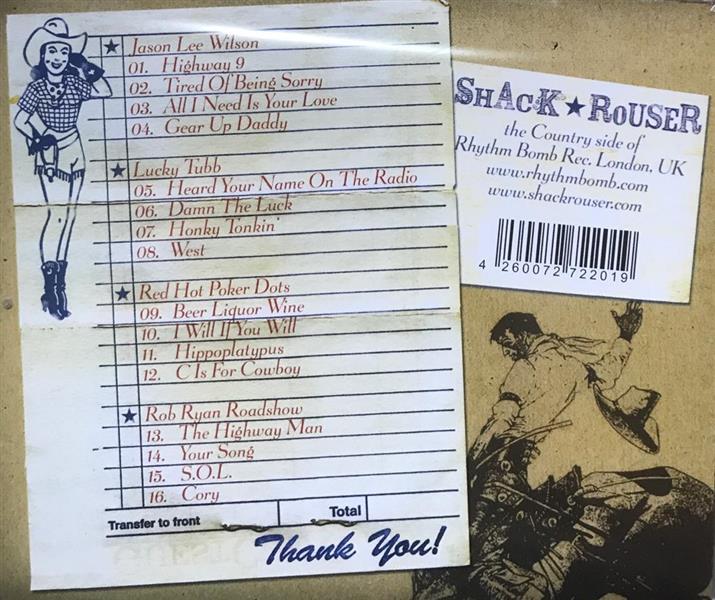 ★ Jason Lee Wilson
01. Highway 9
02. Tired Of Being Sorry
03. All I Need Is Your Love
04. Gear Up Daddy
★ Lucky Tubb
05. Heard Your Name On The Radio
06. Damn The Luck
07. Honky Tonkin'
08. West
★ Red Hot Poker Dots
09. Beer Liquor Wine
10. I Will If You Will
11. Hippoplatypus
12. C Is For Cowboy
★ Rob Ryan Roadshow
13. The Highway Man
14. Your Song
15. S.O.L.
16. Cory
Transfer to front Total
Thank You!
SHACK ★ ROUSER
the Country side of
Rhythm Bomb Rec. London, UK
www.rhythmbomb.com
www.shackrouser.com
4 260072 722019